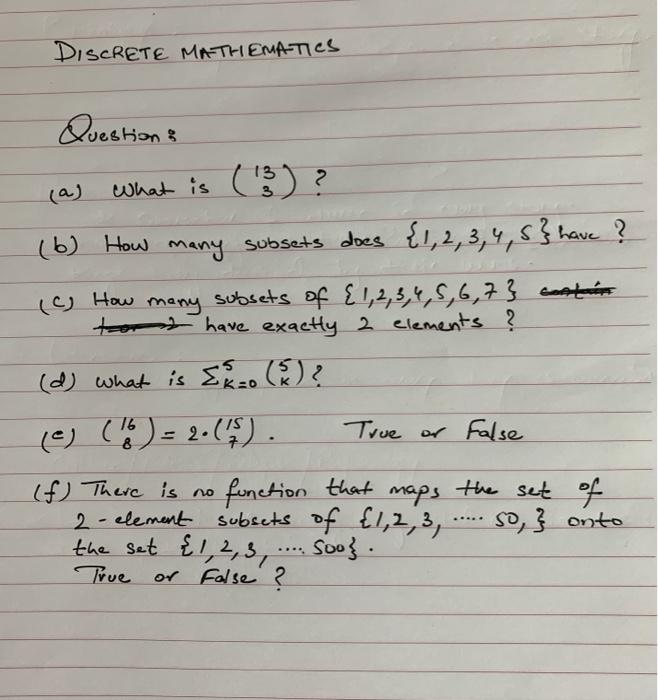 DISCRETE MATHEMATICS
Question:
(a) What is (13 3) ?
(b) How many subsets does {1,2,3,4,5} have ?
(c) How many subsets of {1,2,3,4,5,6,7} contain
have exactly 2 elements ?
(d) what is Σ⁵ₖ₌₀ (5 k) ?
(e) (16 8) = 2·(15 7). True or False
(f) There is no function that maps the set of
2-element subsets of {1,2,3, ..... 50,} onto
the set {1,2,3, .... 500}.
True or False ?